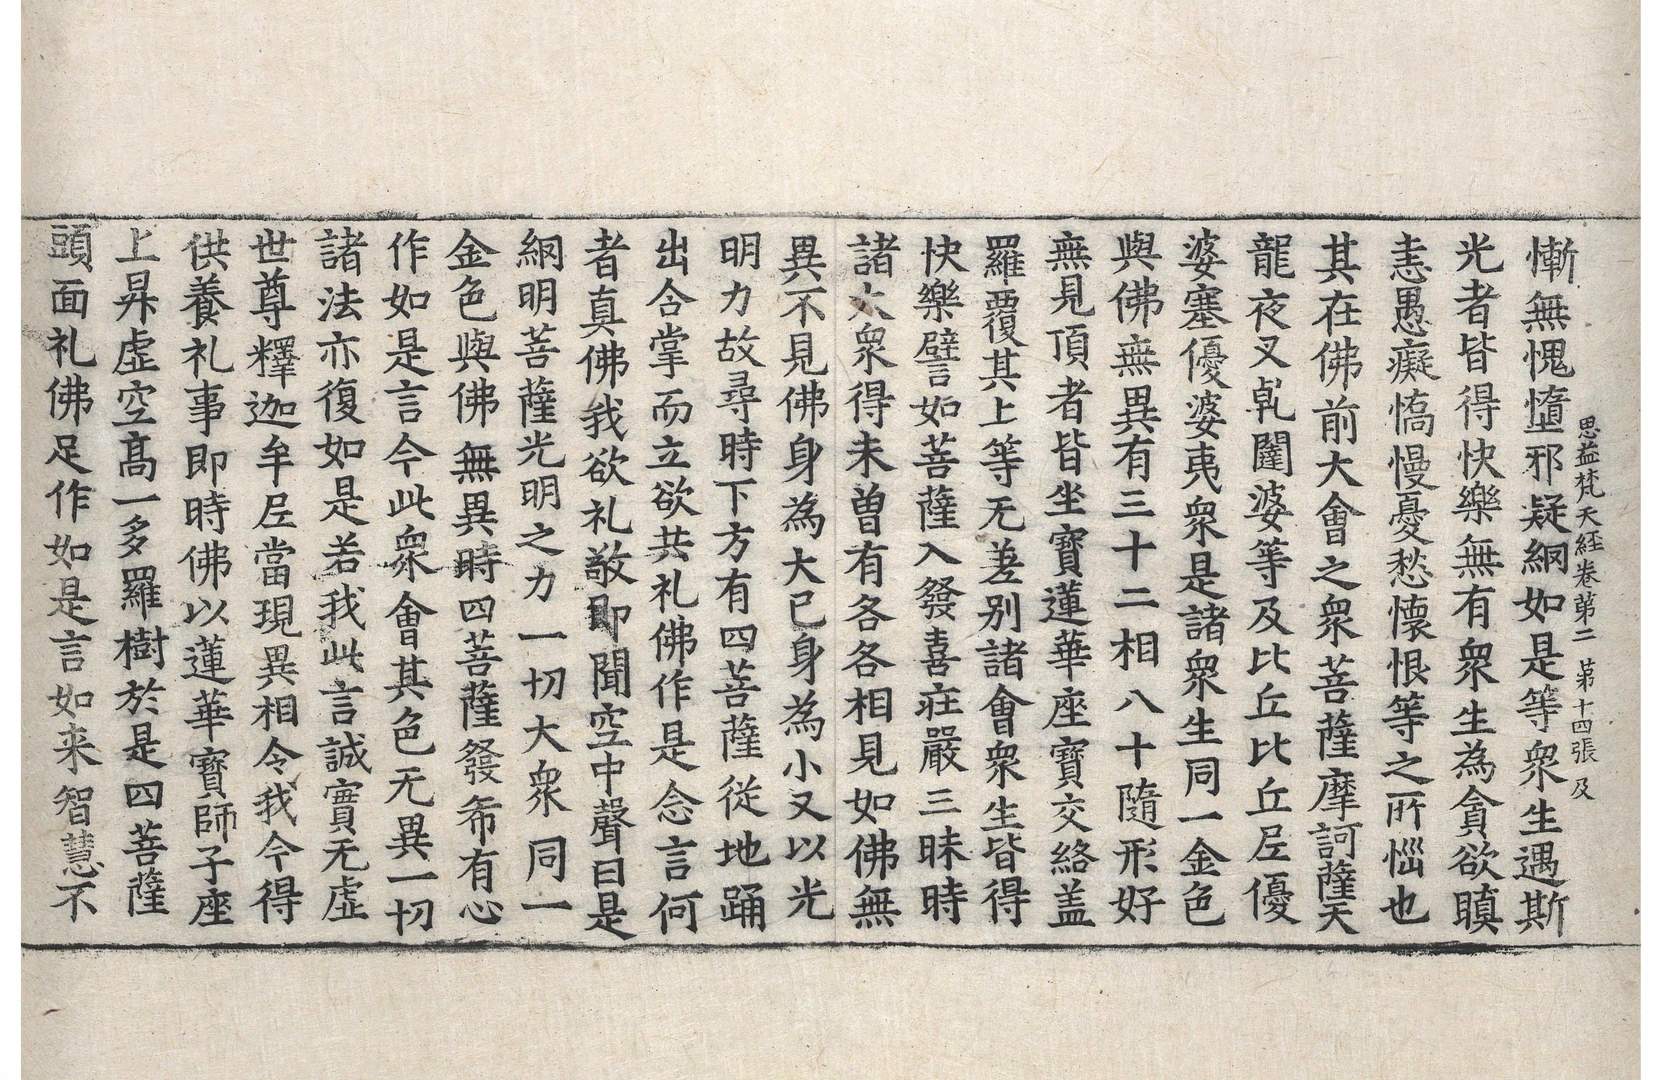 思益梵天經卷第二　第十四張　及
慚無愧墮邪疑網如是等衆生遇斯
光者皆得快樂無有衆生為貪欲瞋
恚愚癡憍慢憂愁懷恨等之所惱也
其在佛前大會之衆菩薩摩訶薩天
龍夜叉乹闥婆等及比丘比丘尼優
婆塞優婆夷衆是諸衆生同一金色
與佛無異有三十二相八十隨形好
無見頂者皆坐寶蓮華座寶交絡盖
羅覆其上等无差别諸會衆生皆得
快樂譬如菩薩入發喜莊嚴三昧時
諸大衆得未曾有各各相見如佛無
異不見佛身為大已身為小又以光
明力故尋時下方有四菩薩從地踊
出合掌而立欲共礼佛作是念言何
者真佛我欲礼敬即聞空中聲曰是
網明菩薩光明之力一切大衆同一
金色與佛無異時四菩薩發希有心
作如是言今此衆會其色无異一切
諸法亦復如是若我此言誠實无虛
世尊釋迦牟尼當現異相令我今得
供養礼事即時佛以蓮華寶師子座
上昇虛空高一多羅樹於是四菩薩
頭面礼佛足作如是言如来智慧不